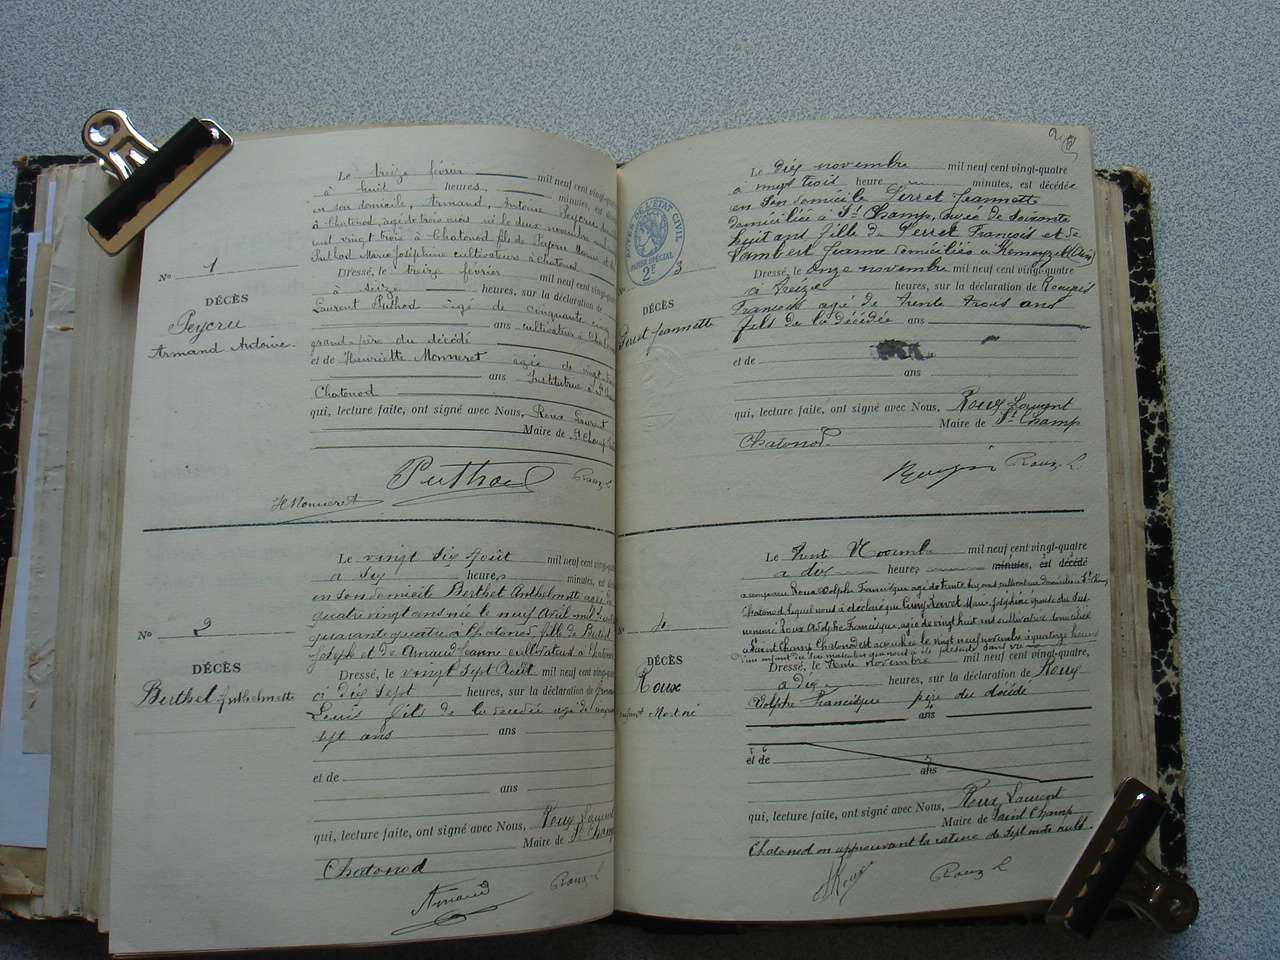 Le treize février mil neuf cent vingt-quatre
à huit heures, minutes, est décédé
en son domicile, Armand, Antoine Peycru
à Chatonod, agé de trois mois né le deux novembre mil neuf
cent vingt trois à Chatonod fils de Peycru Marius et de
Puthod Marie Joséphine cultivateurs à Chatonod
Dressé, le treize février mil neuf cent vingt-quatre
à seize heures, sur la déclaration de
Laurent Puthod âgé de cinquante cinq
ans cultivateur à Chatonod
grand-père du décédé
et de Henriette Monneret agée de vingt
ans Institutrice à St Champ
Chatonod
qui, lecture faite, ont signé avec Nous, Roux Laurent
Maire de St Champ
Puthod Roux L
H Monneret
No 1
DÉCÈS
Peycru
Armand Antoine
Le vingt six Août mil neuf cent vingt-quatre
à six heures minutes, est décédé
en son domicile Berthet Anthelmette agée de
quatre vingt ans née le neuf Avril mil huit
quarante quatre à Chatonod, fille de Berthet
Joseph et de Arnaud Jeanne cultivateurs à Chatonod
Dressé, le vingt sept Août mil neuf cent
à dix sept heures, sur la déclaration de Arnaud
Louis fils de la décédée agé de
sept ans ans
et de
ans
qui, lecture faite, ont signé avec Nous, Roux Laurent
Maire de St Champ
Chatonod
Arnaud Roux L
No 2
DÉCÈS
Berthet Anthelmette
2
DE L'ETAT CIVIL
PAPIER SPECIAL
2F
Le Dix novembre mil neuf cent vingt-quatre
à vingt trois heure minutes, est décédée
en son domicile Perret Jeannette
domiciliée à St Champ, agée de soixante
huit ans fille de Perret François et de
Vambert Jeanne domiciliés à Remoyret (Ain)
Dressé, le onze novembre mil neuf cent vingt-quatre
à treize heures, sur la déclaration de
François agé de trente trois ans
fils de la décédée ans
et de
ans
qui, lecture faite, ont signé avec Nous, Roux Laurent
Maire de St Champ
Chatonod
Roux L.
3
DÉCÈS
Perret Jeannette
Le Trente Novembre mil neuf cent vingt-quatre
à dix heures minutes, est décédé
a comparu Roux Adolphe Francisque agé de trente ans cultivateur domicilié à St Champ
Chatonod lequel nous a déclaré que Marie Joséphine épouse du sus
nommé Roux Adolphe Francisque, agée de vingt huit ans cultivatrice domiciliée
à Saint Champ Chatonod est accouchée le vingt neuf novembre à quatorze heures
d'un enfant du sexe masculin
Dressé, le trente novembre mil neuf cent vingt-quatre,
à dix heures, sur la déclaration de Roux
Adolphe Francisque père du décédé
ans
et de
ans
qui, lecture faite, ont signé avec Nous, Roux Laurent
Maire de Saint Champ
Chatonod en approuvant la rature de sept mots nuls.
Roux Roux L
4
DÉCÈS
Roux
enfant Mort né